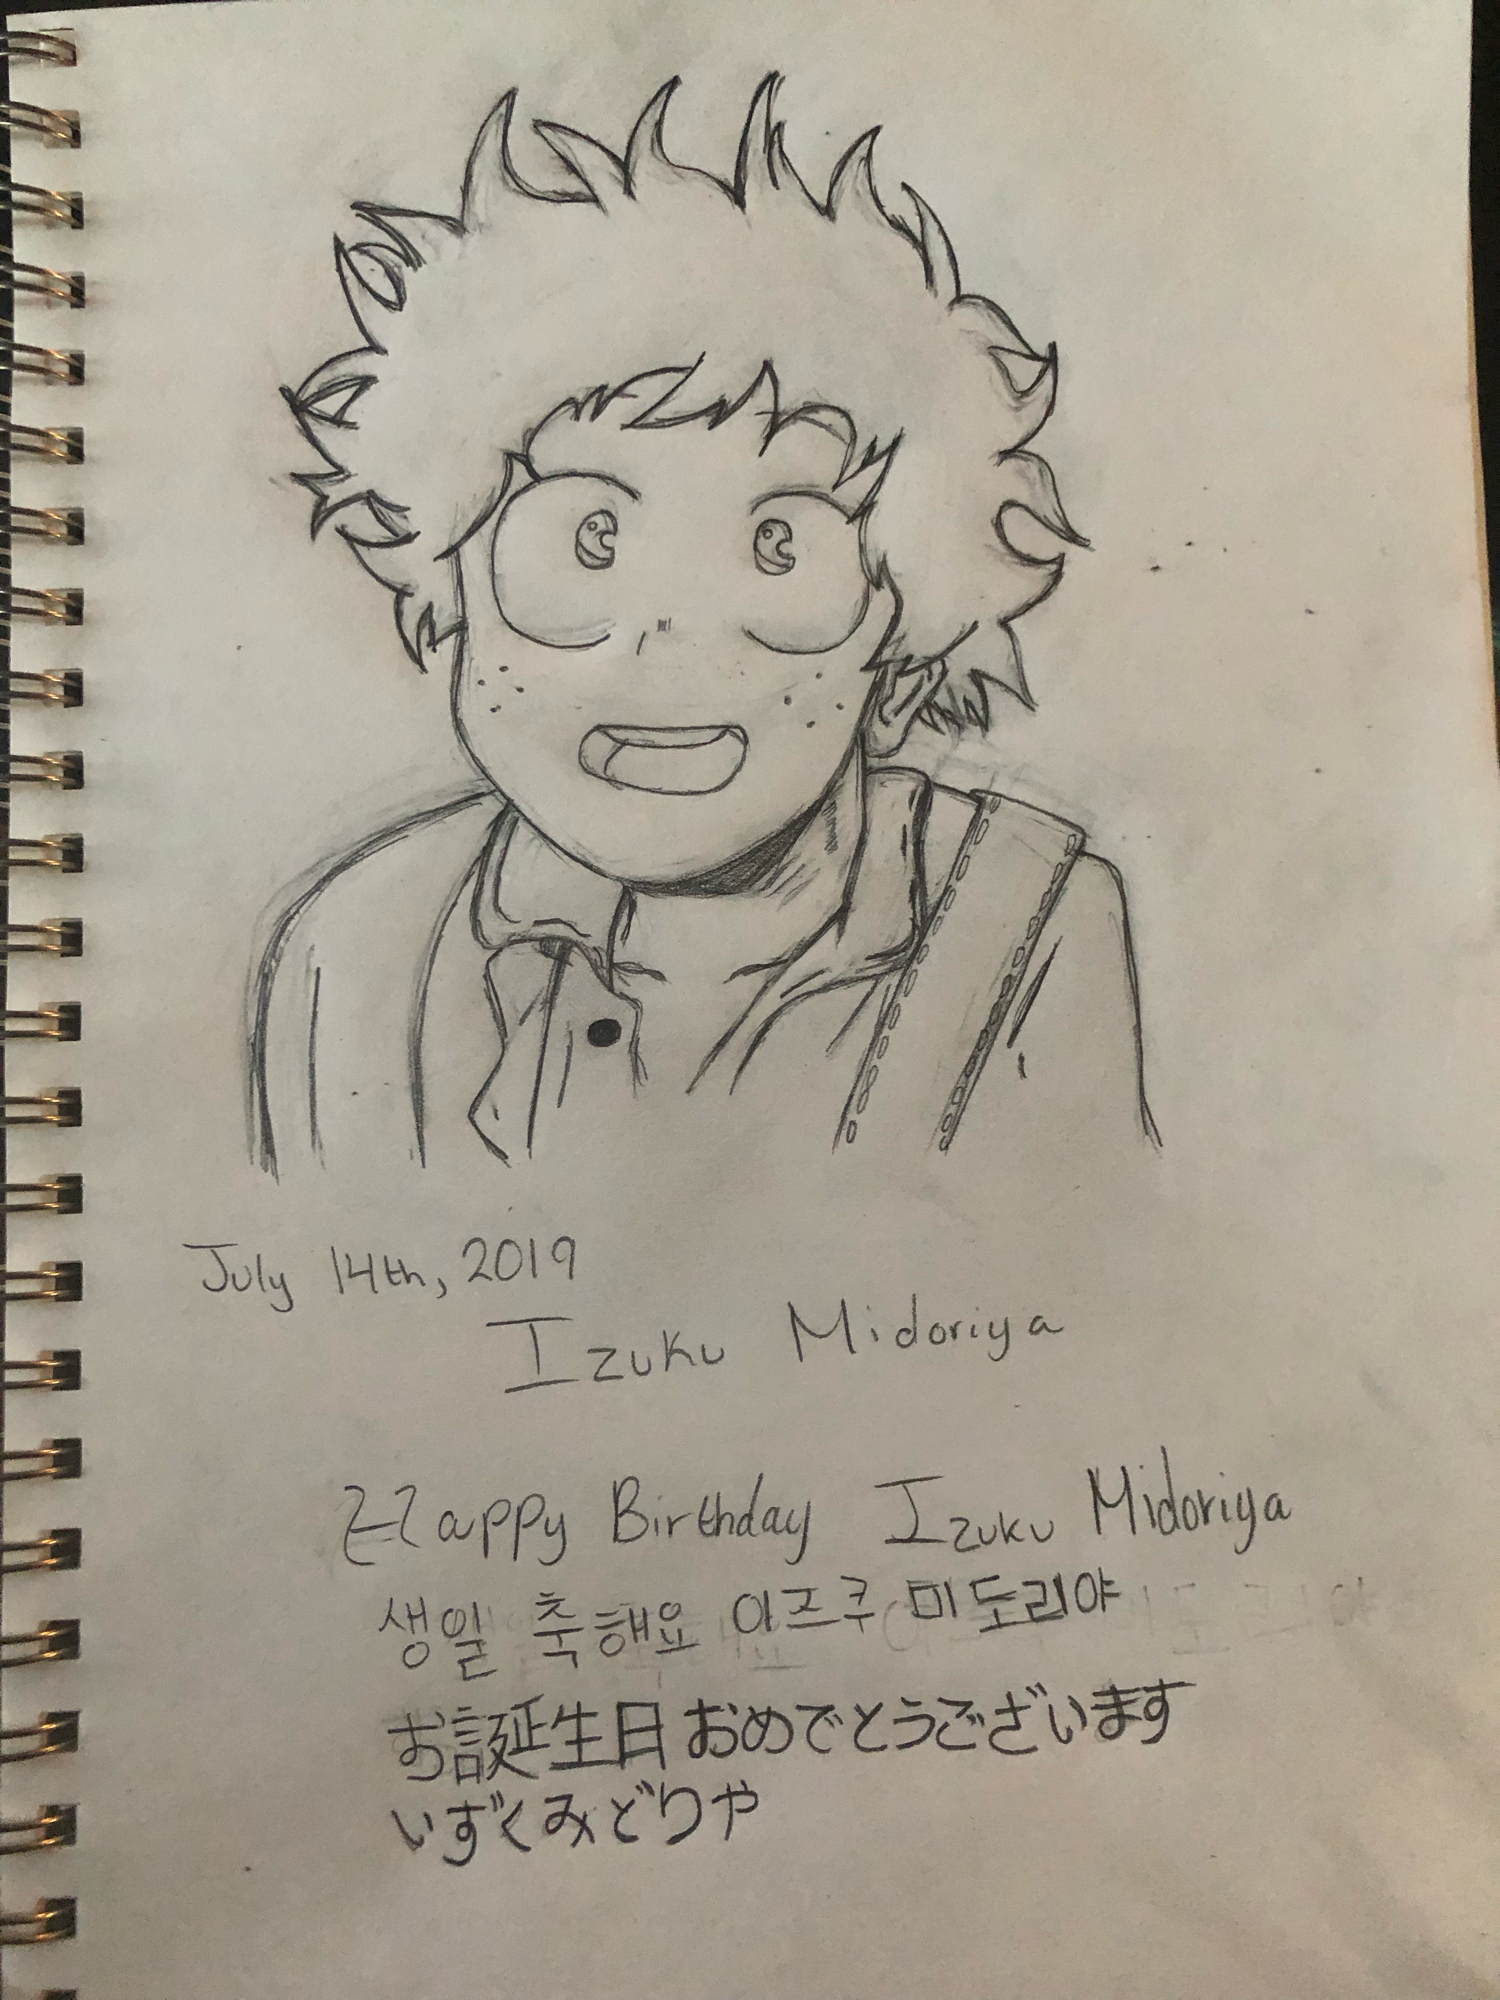 July 14th, 2019
Izuku Midoriya
Happy Birthday Izuku Midoriya
생일 축해요 이즈쿠 미도리야
お誕生日おめでとうございます
いずくみどりや